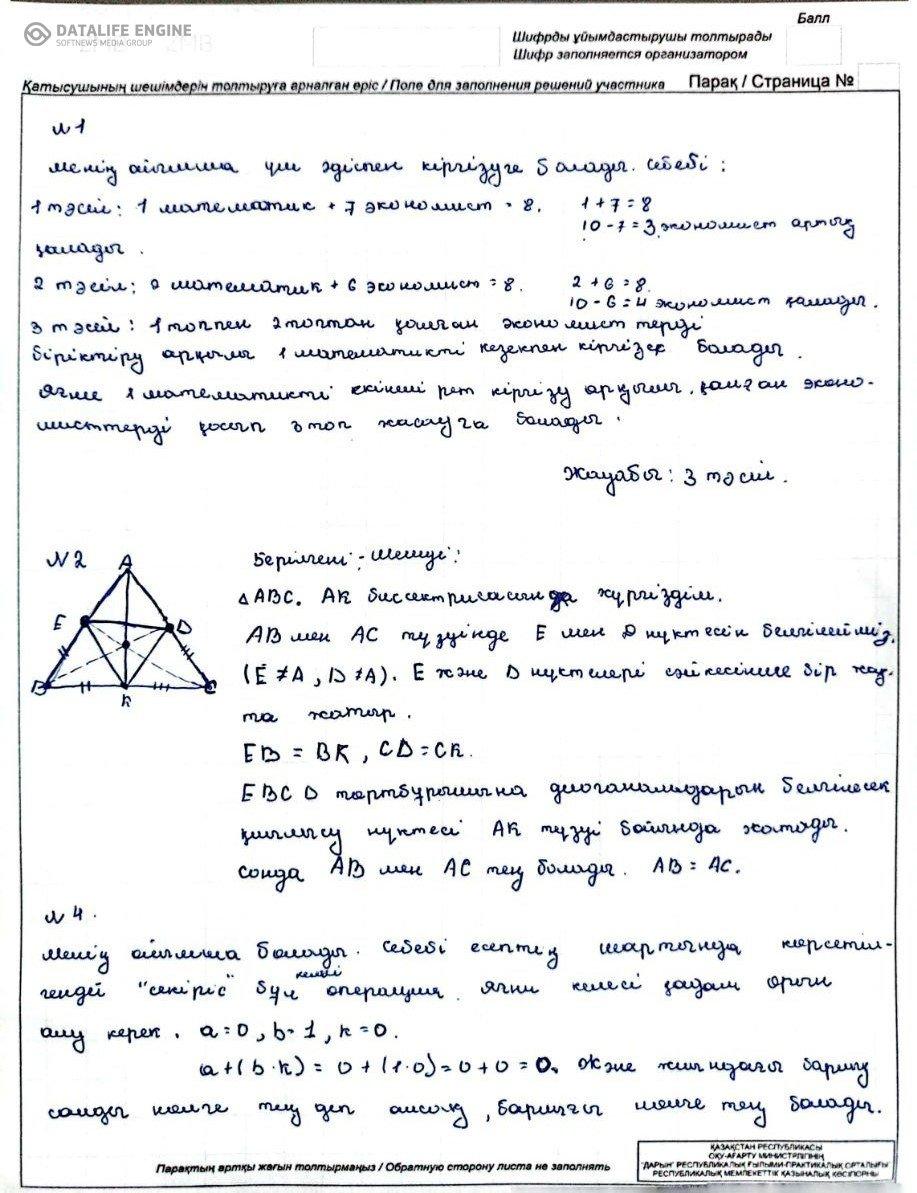 DATALIFE ENGINE
SOFTNEWS MEDIA GROUP
Балл
Шифрды ұйымдастырушы толтырады
Шифр заполняется организатором
Қатысушының шешімдерін толтыруға арналған өріс / Поле для заполнения решений участника Парақ / Страница №
№1
менің ойымша үш әдіспен кіргізуге болады. себебі :
1 тәсіл: 1 математик + 7 экономист = 8. 1 + 7 = 8
10 - 7 = 3 экономист артық
қалады.
2 тәсіл: 2 математик + 6 экономист = 8. 2 + 6 = 8.
10 - 6 = 4 экономист қалады.
3 тәсіл : 1 топпен 2 топтан қалған экономисттерді
біріктіру арқылы 1 математикті кезекпен кіргізсек болады.
яғни 1 математикті екінші рет кіргізу арқылы. қалған эконо-
мисттерді қосып 3 топ жасауға болады.
Жауабы : 3 тәсіл.
№2
Берілгені - шешуі :
A
E
D
B
K
C
△ABC. AK биссектрисасында жүргіздім.
AB мен AC түзуінде E мен D нүктесін белгілейміз.
(E ≠ A, D ≠ A). E және D нүктелері сәйкесінше бір жақ-
та жатыр.
EB = BK, CD = CK.
EBCD төртбұрышына диогональдарын белгілесек
қиылысу нүктесі AK түзуі бойында жатады.
сонда AB мен AC тең болады. AB = AC.
№ 4.
менің ойымша болады. себебі есептің шартында көрсетіл-
гендей "секіріс" бұл операция. яғни келесі қадам орын
алу керек. a = 0, b = 1, k = 0.
a+(b·k) = 0 + (1·0) = 0 + 0 = 0. Және жиындағы барлық
санды нөлге тең деп алсақ, барлығы нөлге тең болады.
Парақтың артқы жағын толтырмаңыз / Обратную сторону листа не заполнять
ҚАЗАҚСТАН РЕСПУБЛИКАСЫ
ОҚУ-АҒАРТУ МИНИСТРЛІГІНІҢ
"ДАРЫН" РЕСПУБЛИКАЛЫҚ ҒЫЛЫМИ-ПРАКТИКАЛЫҚ ОРТАЛЫҒЫ
РЕСПУБЛИКАЛЫҚ МЕМЛЕКЕТТІК ҚАЗЫНАЛЫҚ КӘСІПОРНЫ